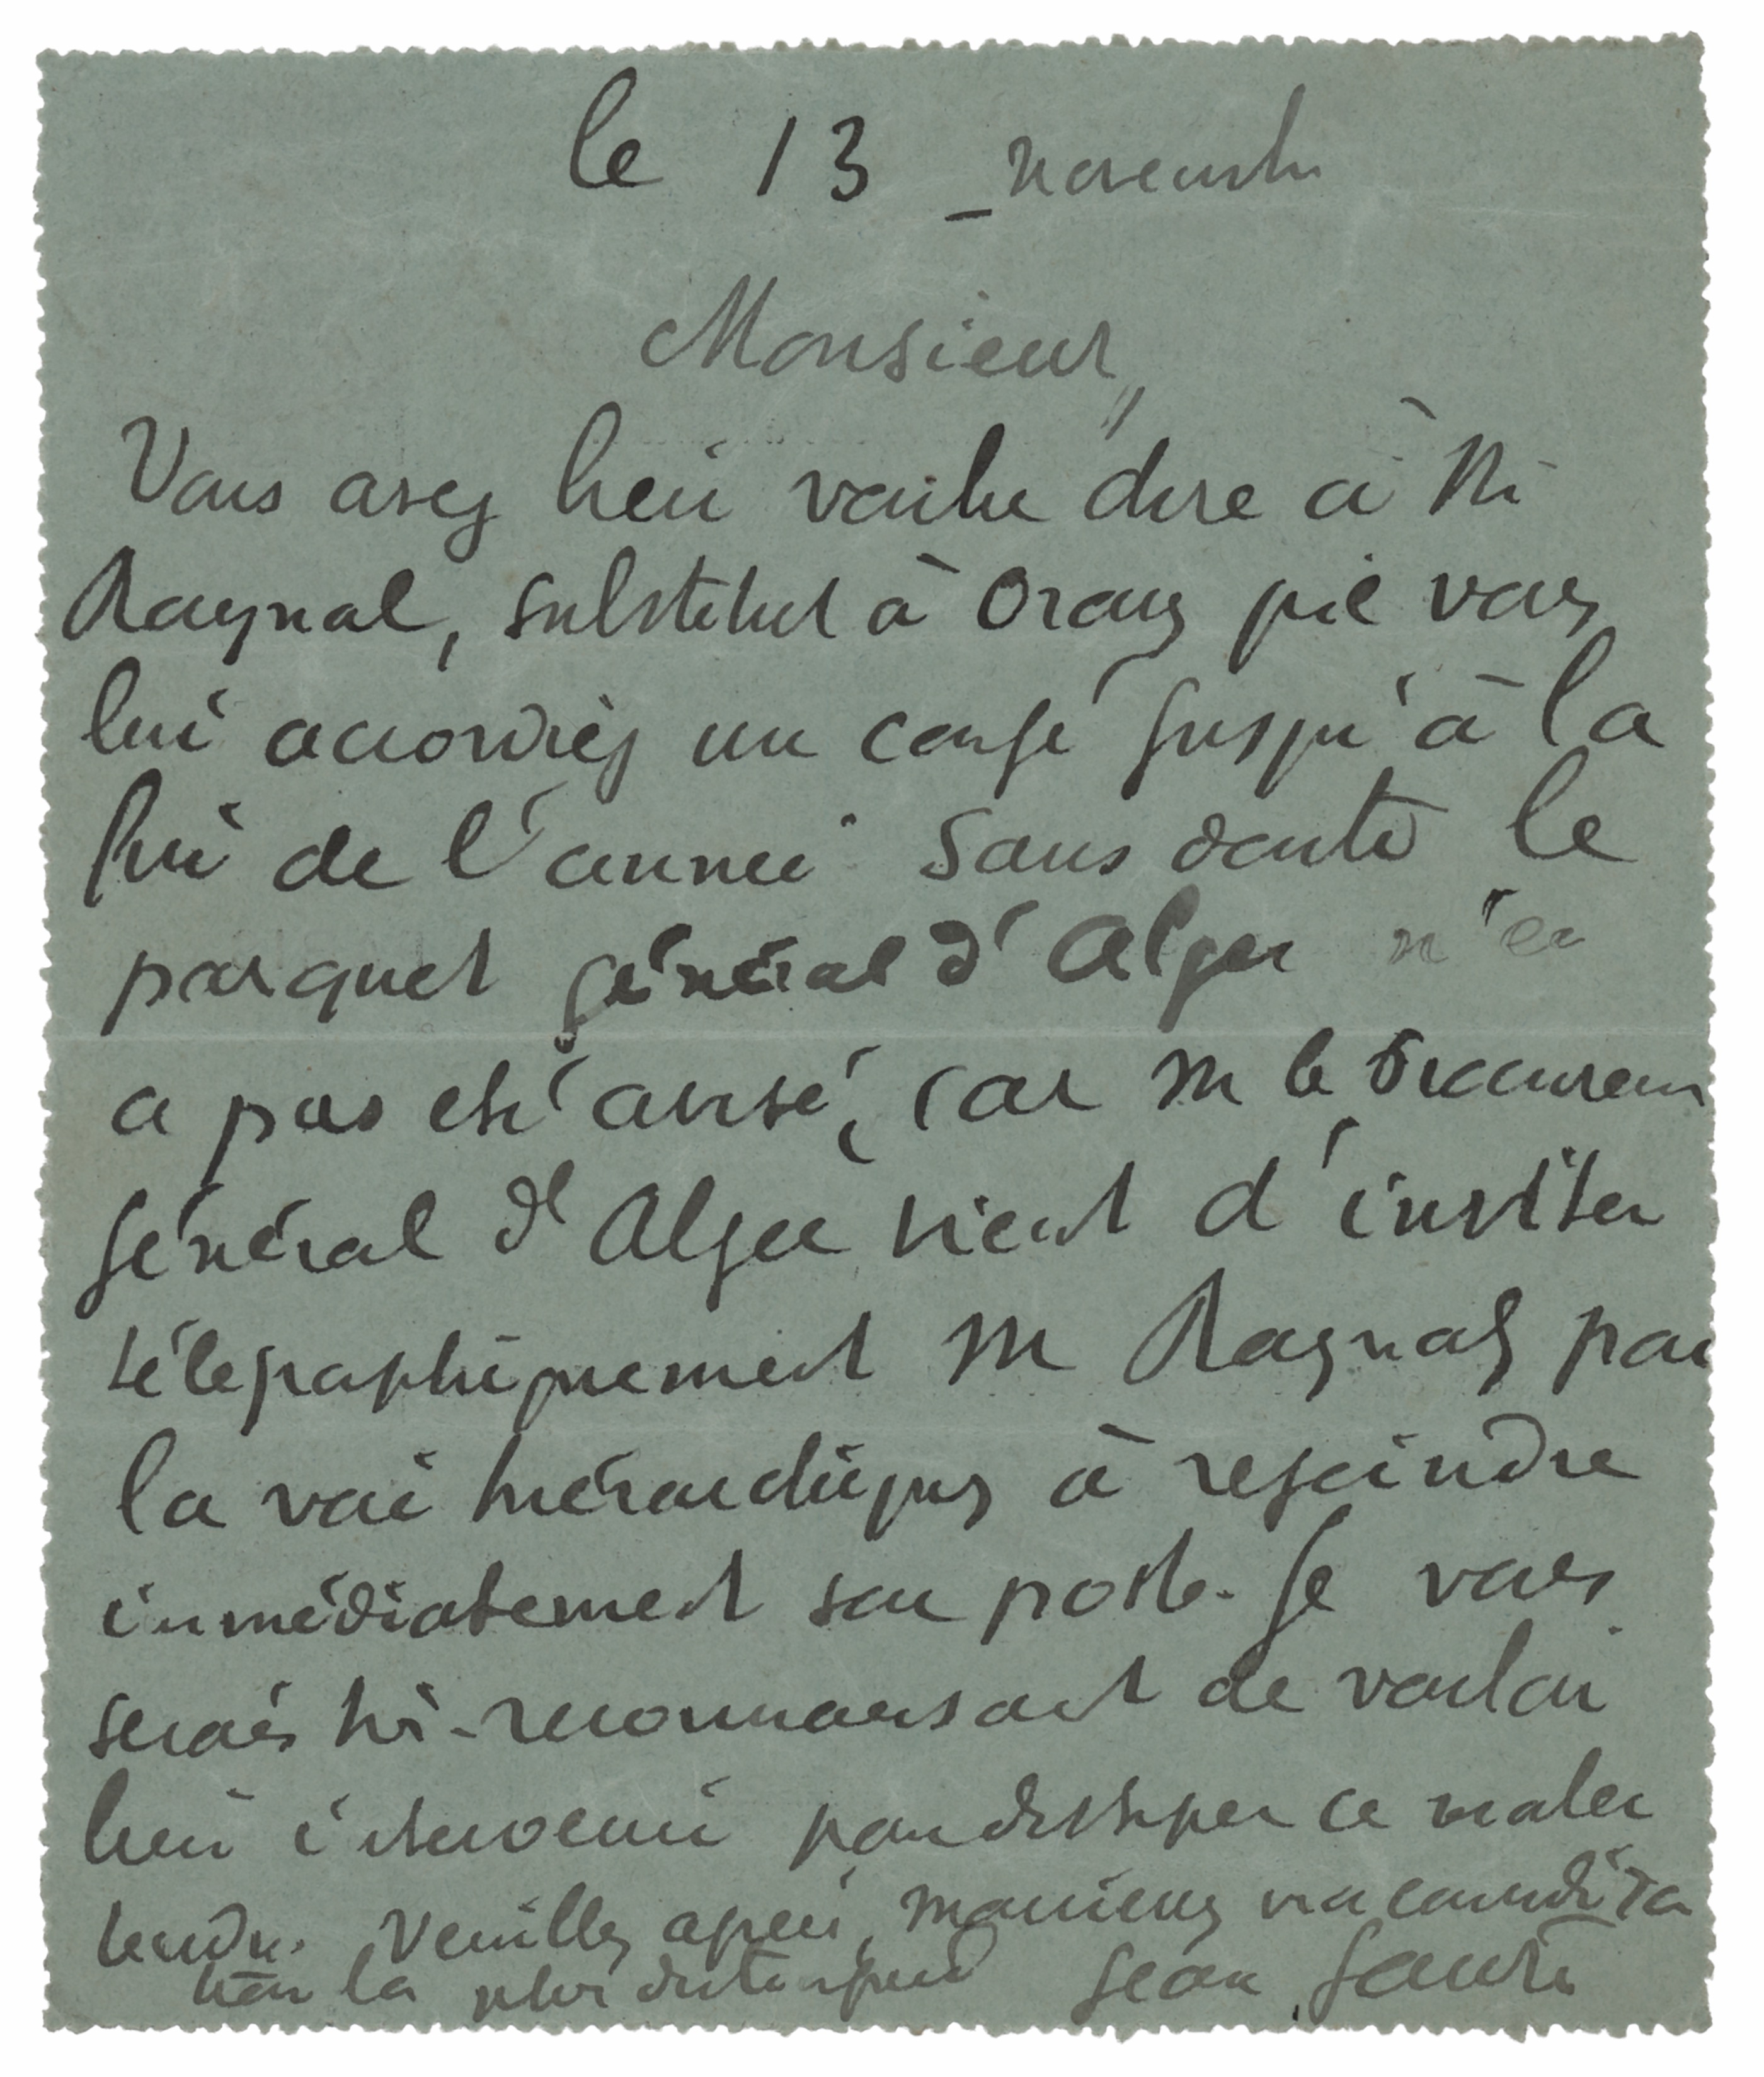 le 13 _ novembre
Monsieur,
Vous avez bien voulu dire à M.
Raynal, substitut à Oran, que vous
lui accordiez un congé jusqu'à la
fin de l'année. Sans doute le
parquet général d'Alger n'en
a pas été avisé, car M le Procureur
général d'Alger vient d'inviter
télégraphiquement M Raynal, par
la voie hiérarchique, à rejoindre
immédiatement son poste. Je vous
serais très-reconnaissant de vouloir
bien intervenir pour dissiper ce malen
tendu. Veuillez agréer, Monsieur, ma considéra
tion la plus distinguée Jean Jaurès